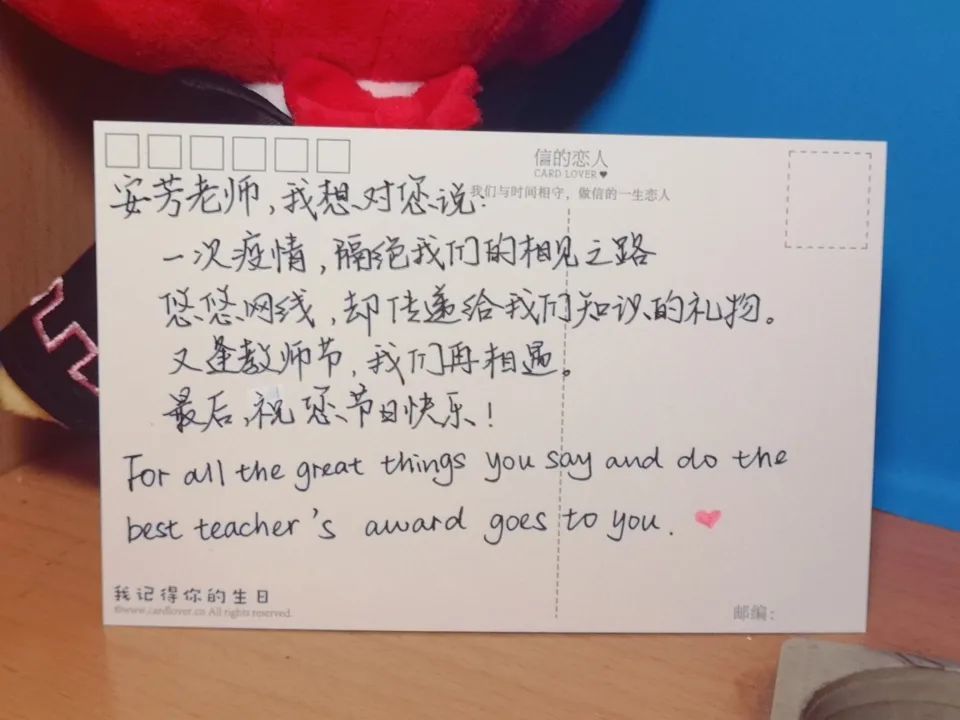 信的恋人
CARD LOVER
我们与时间相守，做信的一生恋人
安芳老师，我想对您说：
一次疫情，隔绝我们的相见之路
悠悠网线，却传递给我们知识的礼物。
又逢教师节，我们再相遇。
最后，祝您节日快乐！
For all the great things you say and do the
best teacher's award goes to you.
我记得你的生日
©www.cardlover.cn All rights reserved.
邮编：